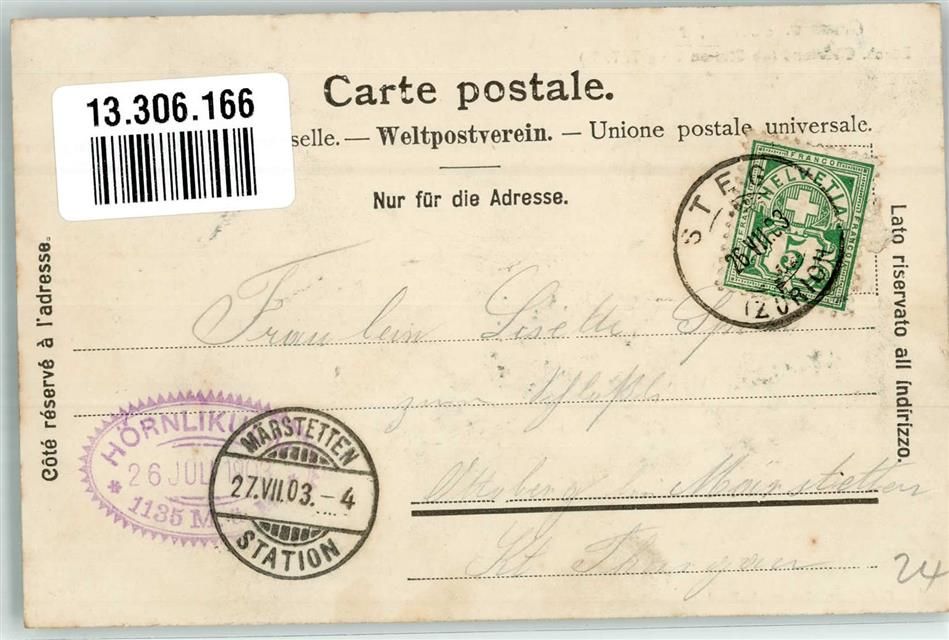 Carte postale.
13.306.166
selle. — Weltpostverein. — Unione postale universale.
Nur für die Adresse.
FRANCO
HELVETIA
FRANCO
5
STEG
26.VII.03
(ZÜRICH)
Côté réservé à l'adresse.
Lato riservato all indirizzo.
Fraulein Lisette
zum Schlößli
bei Märstetten
Kt. Thurgau
HÖRNLIKU
26 JUL 1903
1135 M
MÄRSTETTEN
27.VII.03.-4
STATION
24